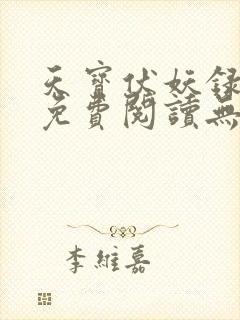 天寶伏妖錄
免費閱讀無
李維嘉